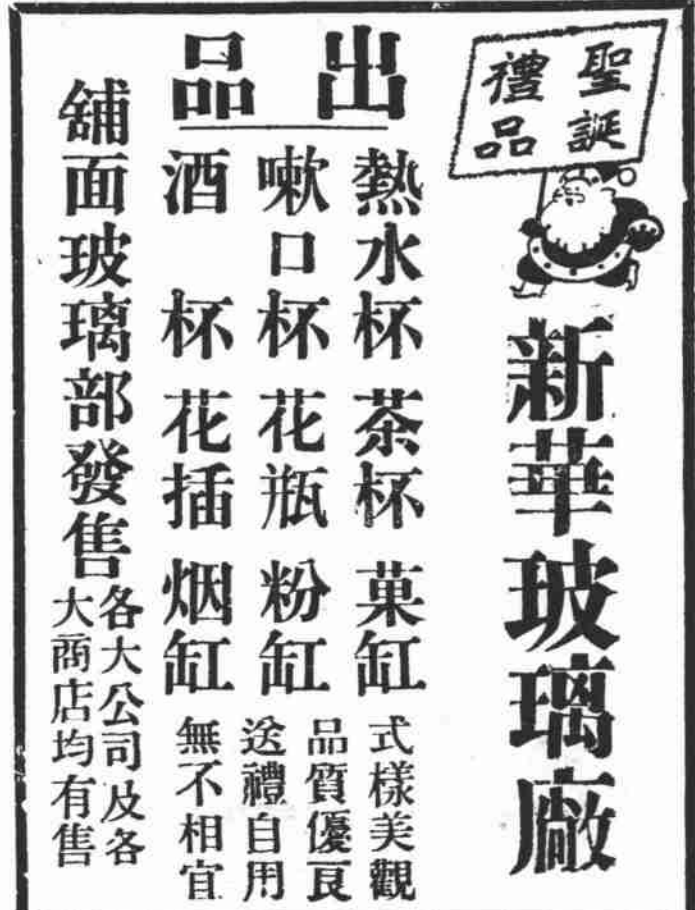 聖誕
禮品
新華玻璃廠
出品
熱水杯 茶杯 菓缸
嗽口杯 花瓶 粉缸
酒杯 花插 烟缸
式樣美觀
品質優良
送禮自用
無不相宜
舖面玻璃部發售
各大公司及各
大商店均有售